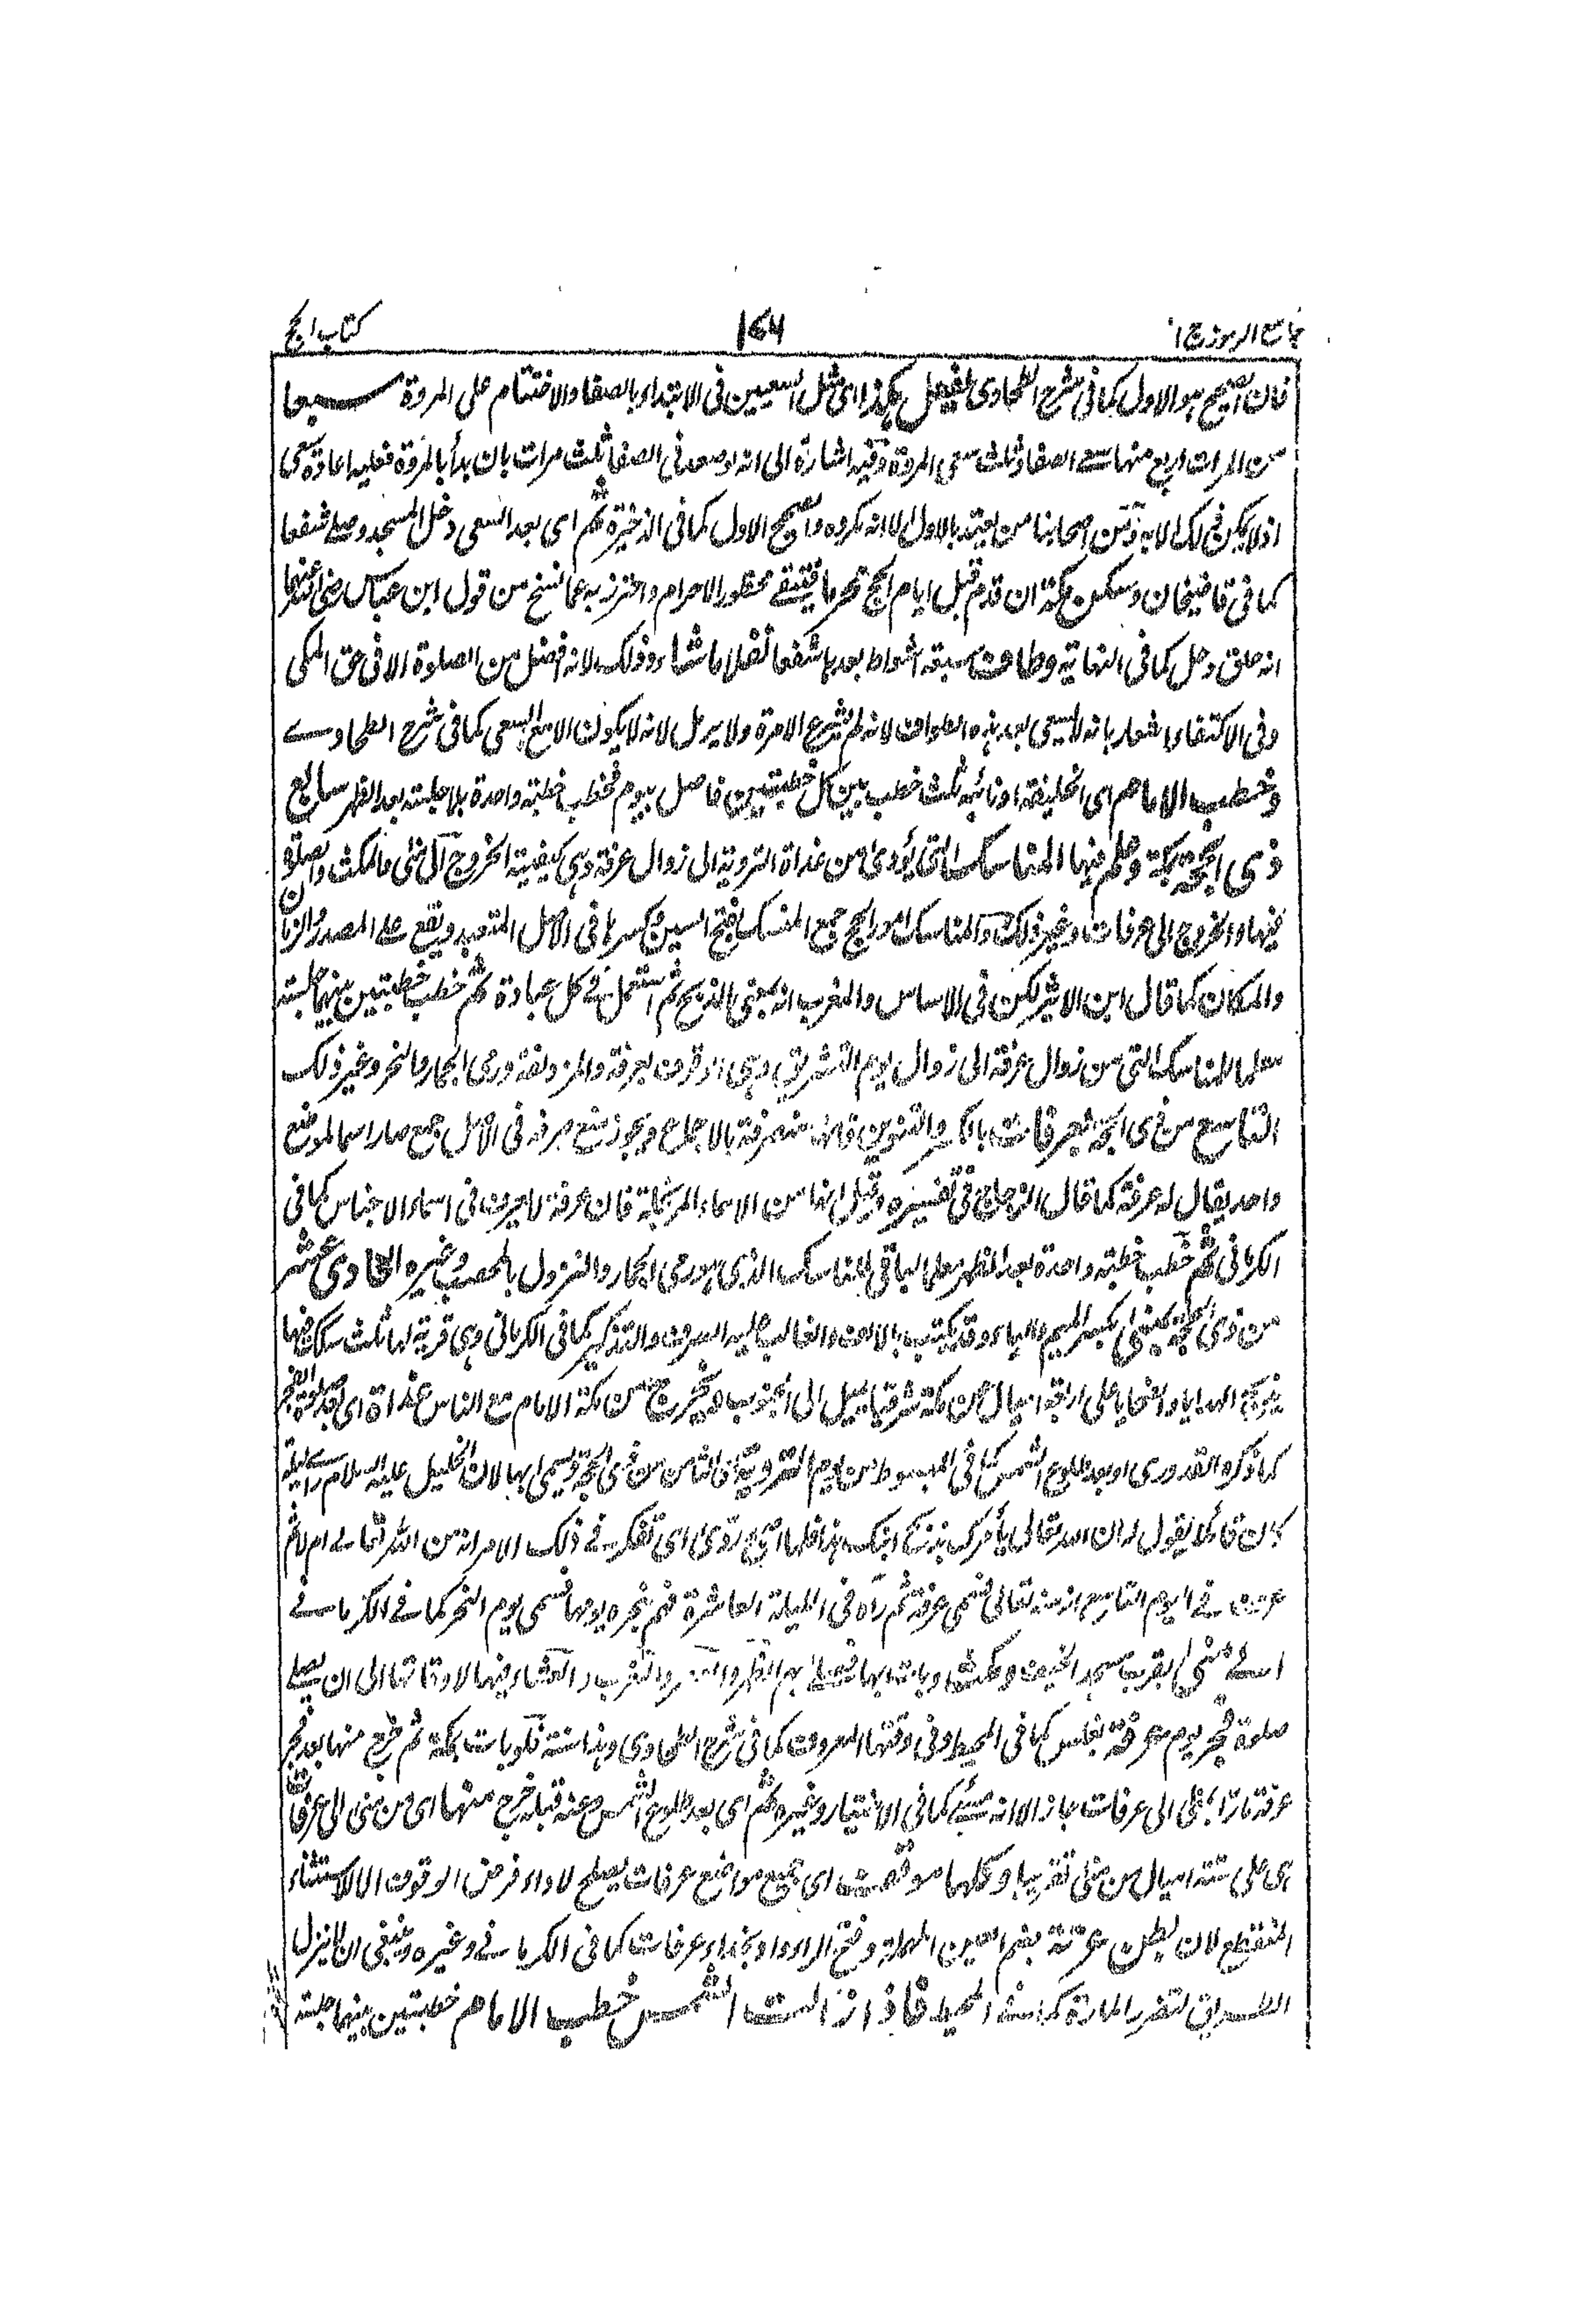 جامع الرموز ج ١
١٧٦
كتاب الحج
فان الصحيح هو الاول كما فى شرح الطحاوى يفعل هكذا اى مثل السعيين فى الابتداء بالصفا والاختتام على المروة سبعا
من المرات اربع منها سعى الصفا وثلث سعى المروة وفيه اشارة الى انه لو صعد فى الصفا ثلث مرات بان بدأ بالمروة فعليه اعادة سعى
اذ لا يكن ذلك الا به ومن اصحابنا من يعتد بالاول الا انه مكروه والصحيح الاول كما فى الذخيرة ثم اى بعد السعى دخل المسجد وصلى شفعا
كما فى قاضيخان وسكن بمكة ان قدم قبل ايام الحج محرما يتقى محظور الاحرام واحترز به عما نسخ من قول ابن عباس رضى الله عنهما
انه حلق وحل كما فى النهاية وطاف سبعة اشواط بعدها شفعا نفلا ما شاء وذلك لانه افضل من الصلوة الا فى حق المكى
وفى الاكتفاء اشعار بانه لا يسعى بعد هذه الطواف لانه لم يشرع الا مرة ولا يرمل لانه لا يكون الا مع السعى كما فى شرح الطحاوے
وخطب الامام اى الخليفة او نائبه ثلث خطب بين كل خطبتين فاصل بيوم فخطب خطبة واحدة بلا جلسة بعد الظهر سابع
ذى الحجة بمكة وعلم فيها المناسك التى يؤدى من غداة التروية الى زوال عرفة وهى كيفية الخروج الى منى والمكث والصلوة
فيها والخروج الى عرفات وغير ذلك والمناسك امور الحج جمع المنسك بفتح السين وكسرها فى الاصل المتعبد ويقع على المصدر والزمان
والمكان كما قال ابن الاثير لكن فى الاساس والمغرب انه بمعنى الذبح ثم استعمل فى كل عبادة ثم خطب خطبتين بينهما جلسة
معلما للمناسك التى من زوال عرفة الى زوال يوم التشريق وهى الوقوف بعرفة والمزدلفة ورمى الجمار والنحر وغير ذلك
التاسع من ذى الحجة بعرفات بالكسر والتنوين فانها منصرفة بالاجماع ويجوز منع صرفه فى الاصل جمع صار اسما لموضع
واحد يقال له عرفة كما قال الزجاج فى تفسيره وقيل انها من الاسماء المرتجلة فان عرفة لا يعرف فى اسماء الاجناس كما فى
الكرمانى ثم خطب خطبة واحدة بعد الظهر معلما لباقى المناسك الذى هو رمى الجمار والنزول بالمحصب وغيره الحادى عشر
من ذى الحجة بمنى بكسر الميم والياء وقد يكتب بالالف والغالب عليه الصرف والتذكير كما فى الكرمانى وهى قرية لها ثلث سكك فيها
يذبح الهدايا والضحايا على اربعة اميال من مكة شرقيا يميل الى الجنوب ويخرج من مكة الامام مع الناس غداة اى بعد صلوة الفجر
كما ذكره القدورى او بعد طلوع الشمس كما فى المبسوط من يوم التروية اى الثامن من ذى الحجة ويسمى بها لان الخليل عليه السلام رأے ليلة
كان قائلا يقول له ان الله تعالى يأمرك بذبح ابنك هذا فلما اصبح روّى اى تفكر فى ذلك الامر انه من الله تعالے ام لا ثم
عرف فى اليوم التاسع انه منه تعالى فسمى عرفة ثم رآه فى الليلة العاشرة فهم بنحره يومها فسمى يوم النحر كما فے الكرمانے
الے منى بقرب مسجد الخيف ومكث وبات بها فصلى بهم الظهر والعصر والمغرب والعشاء فيها لاوقاتها الى ان يصلے
صلوة فجر يوم عرفة بغلس كما فى المحيط وفى وقتها المعروف كما فى شرح الطحاوى وهذا سنة فلو بات بمكة ثم خرج منها بعد فجر
عرفة مارا بمنى الى عرفات جاز الا انه مسئ كما فى الاختيار وغيره ثم اى بعد طلوع الشمس وعنه قبله خرج منها اى من منى الى عرفات
هى على ستة اميال من منى تقريبا وكلها موقف اى جميع مواضع عرفات يصلح لاداء فرض الوقوف الا الاستثناء
المنقطع لان بطن عرنة بضم العين المهملة وفتح الراء واد بحذاء عرفات كما فى الكرمانے وغيره وينبغى ان لا ينزل
الطريق لتضرر المارة كما فے المحيط فاذا زالت الشمس خطب الامام خطبتين بينهما جلسة